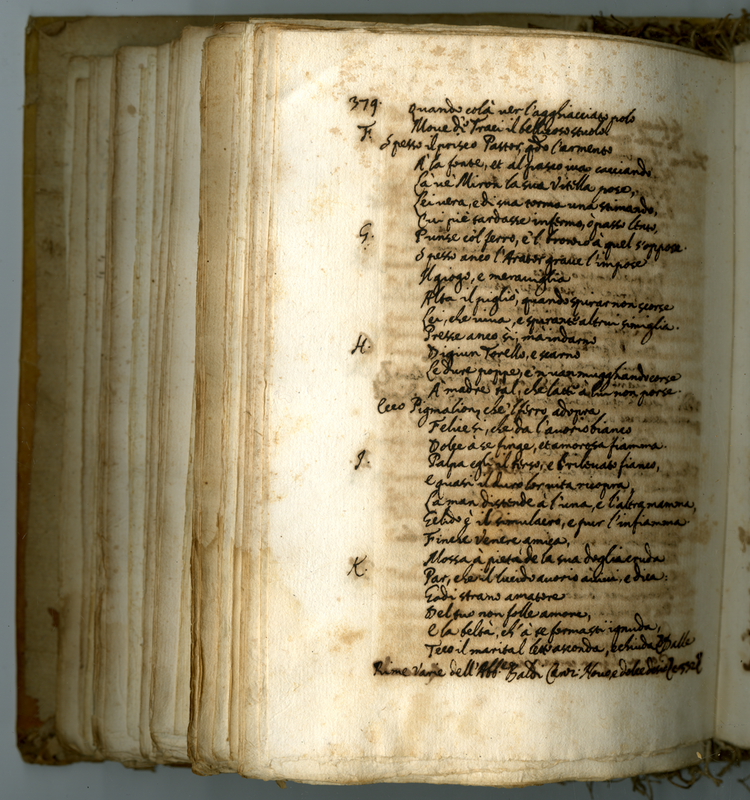 379. quando colà ver l'agghiacciato polo
F. Move di Traci il bellicoso stuolo.
Spesso il prisco Pastor, l'armento
A la fonte, et al pasco iva cacciando,
Là ve Miron la sua Vitella pose,
Lei vera, e di sua torma una stimando,
Cui piè tardasse infermo, ò passo lento,
G. Punse col ferro, e 'l bronzo à quel s'oppose.
Spesso anco l'Arator grave l'impose
Il giogo, e meraviglia
Alta il pigliò, quando spirar non scorse
Lei, che viva, e spirante altrui simiglia.
Presse anco sì, ma indarno
H. Digiun Torello, e scarno
Le dure poppe, e 'n van mugghiando corse
A madre tal, che latte à lui non porse.
Ecco Pigmalion, che 'l ferro adopra
Felice sì, che da l'avorio bianco
Dolce à se finge, et amorosa fiamma.
J. Palpa egli il terso, e rilevato fianco,
e quasi il duro lor vita ricopra,
La man distende à l'una, e l'altra mamma,
Gelido è il simulacro, e pur l'infiamma
Finche Venere amica,
Mossa à pietà de la sua doglia cruda
K. Par, che il lucido avorio avivi, e dica:
Godi strano amatore
Del tuo non folle amore,
e la beltà, ch'à te formasti ignuda,
Teco il marital letto asconda, e chiuda. Dalle
Rime Varie dell'Abb.te Baldi Canz: Move, e dolce